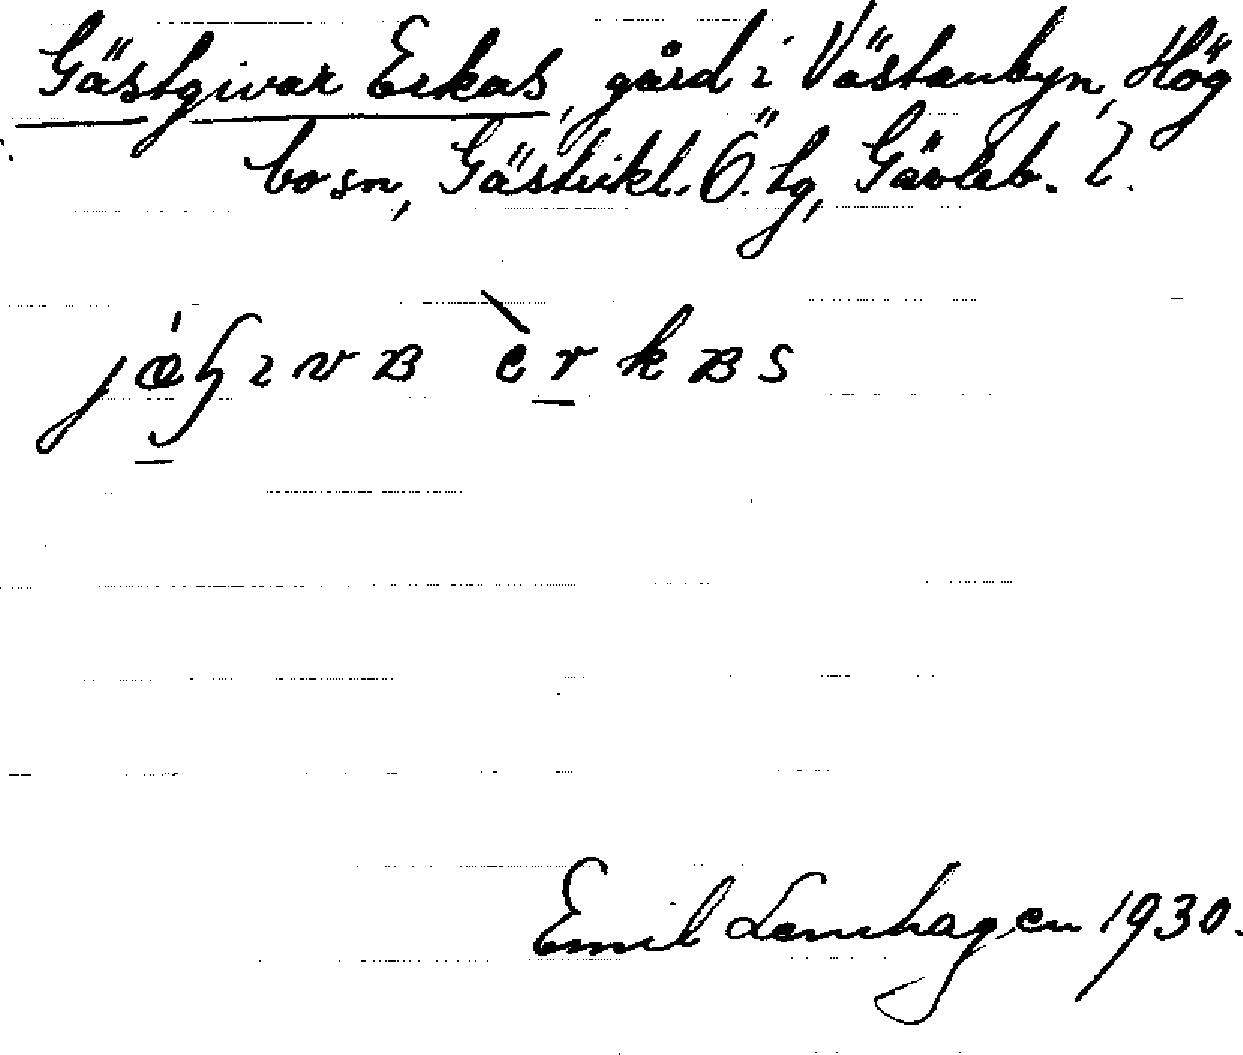 Gästgivar Erkas, gård i Västanbyn, Hög
bo sn, Gästrikl. Ö. tg, Gävleb. l.
Emil Lennhagen 1930.